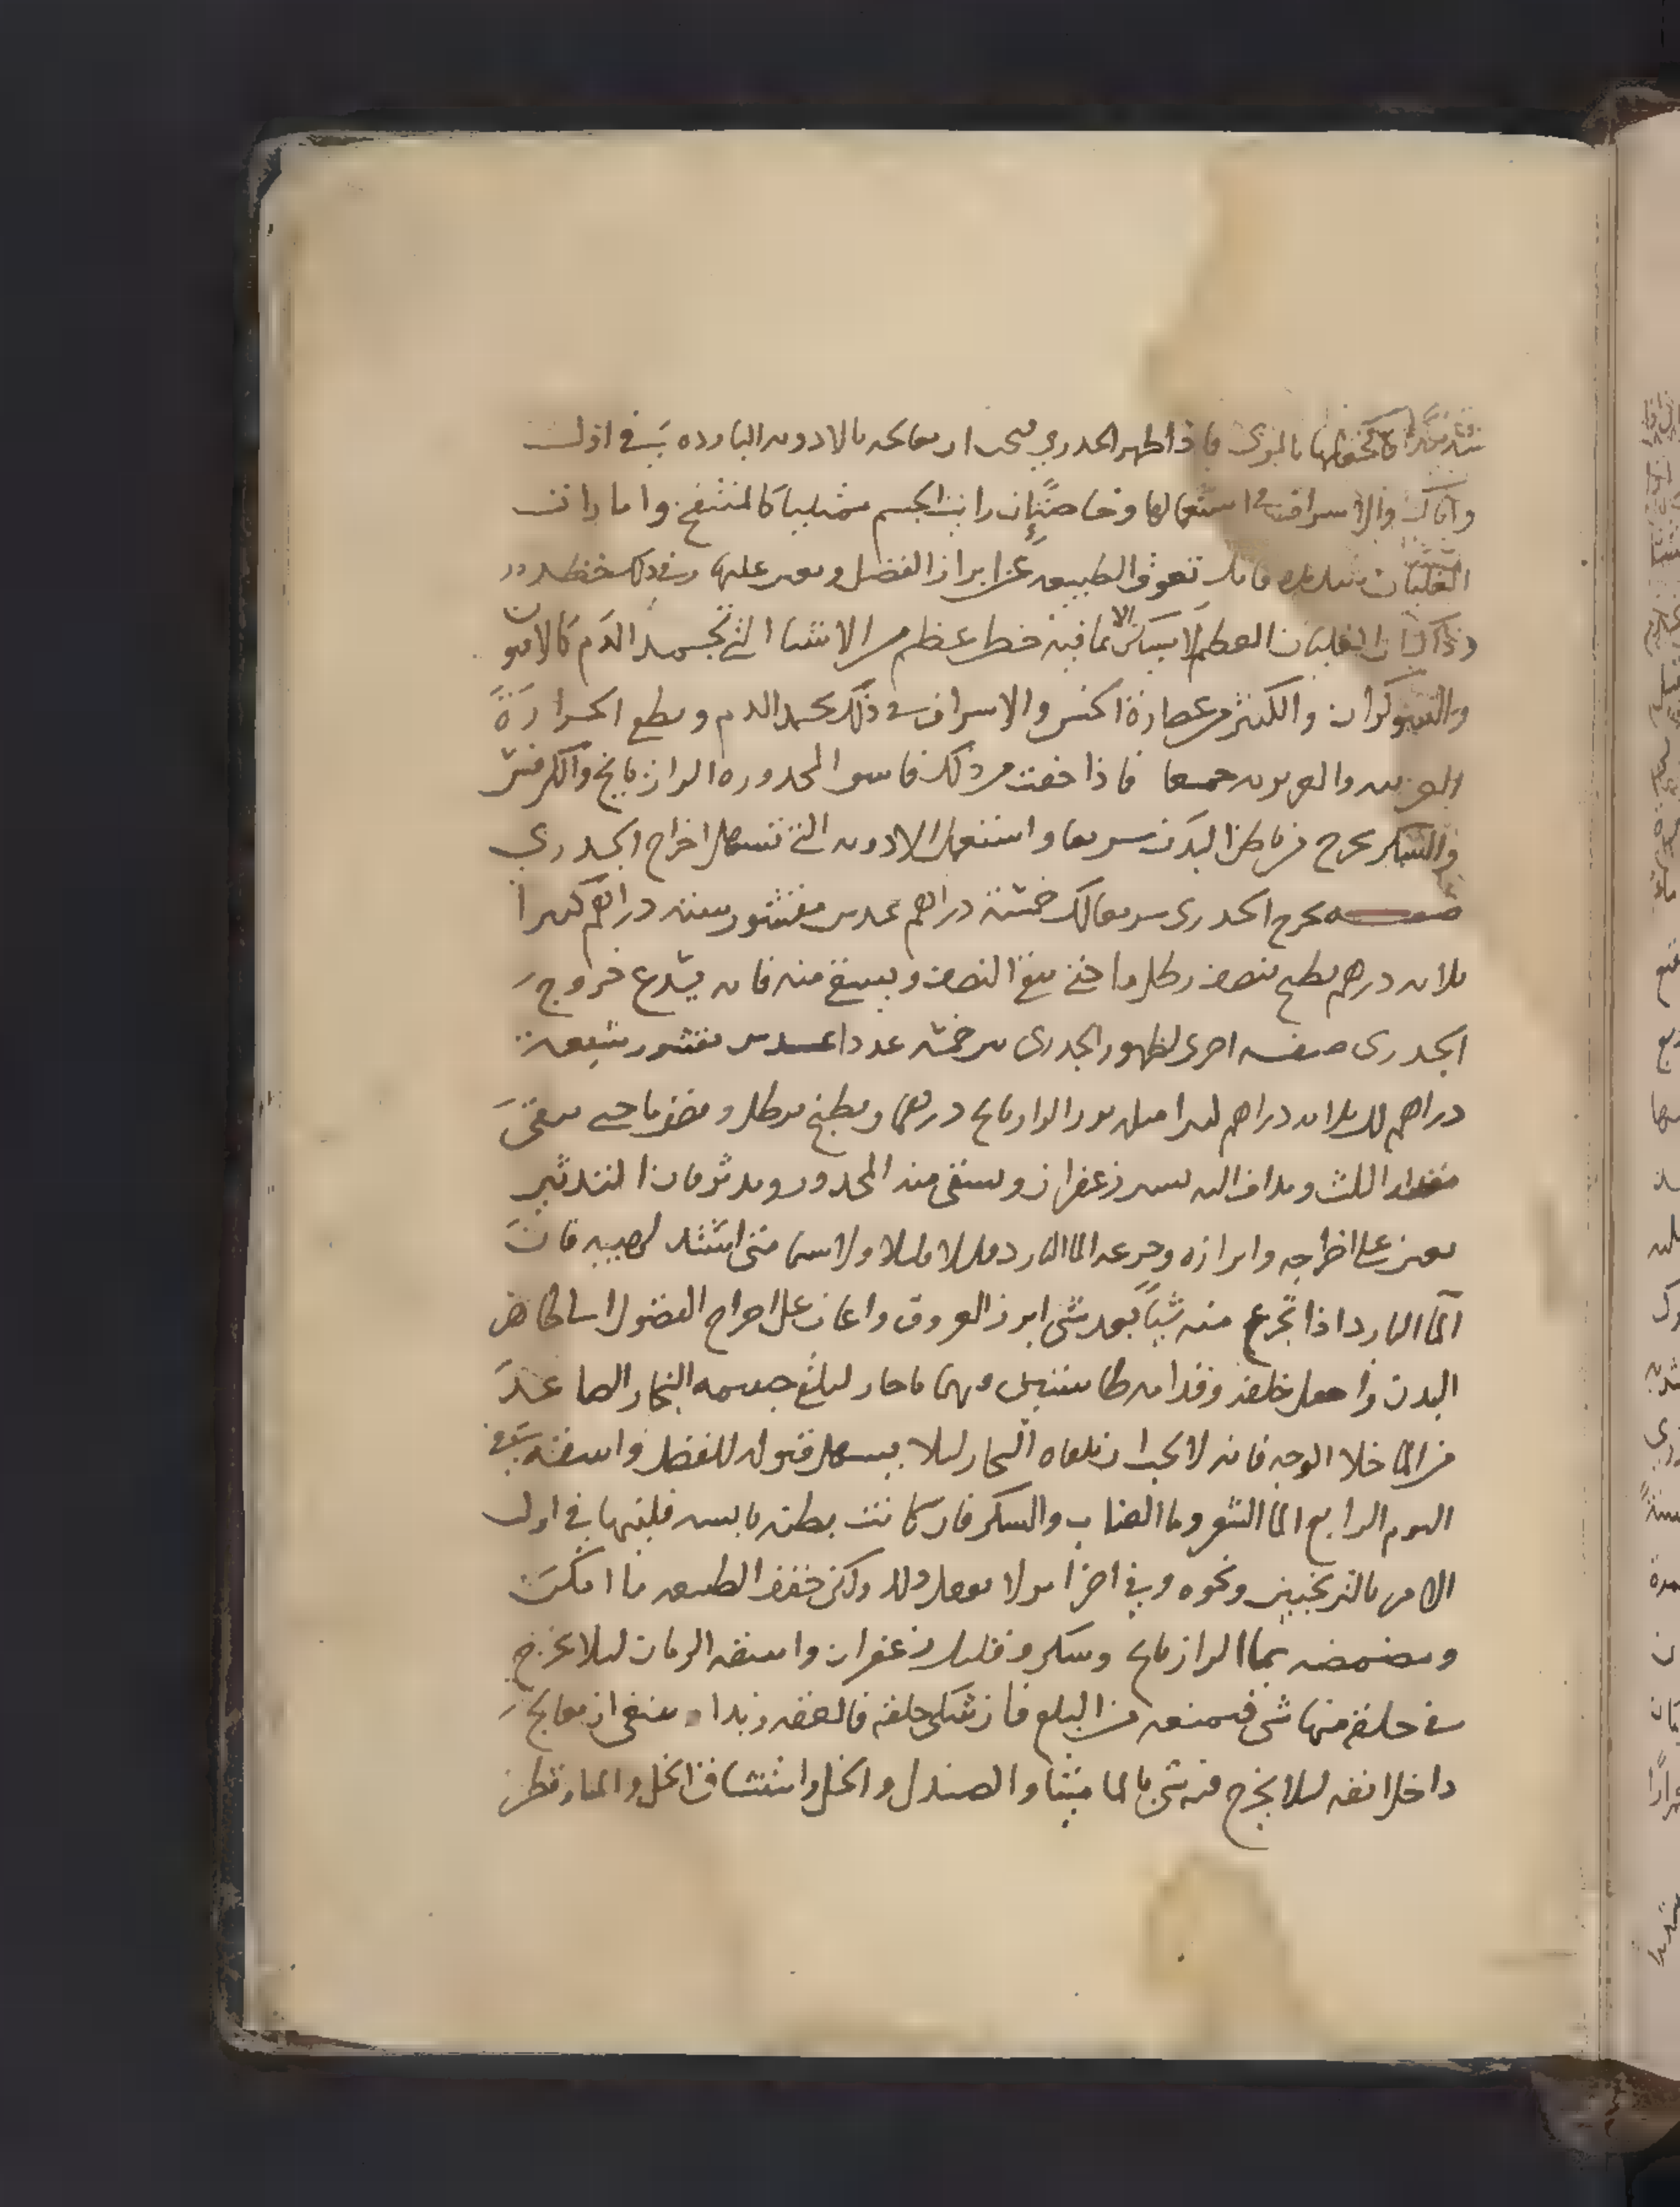 فاذا ظهر الجدري فيجب ان معالجته بالادويه البارده في اول
واياك والاسراف في استعمالها وخاصة ان رايت الجسم ممتليا كالمنتفخ واما رايت
الغليان فانك تعوق الطبيعه عن ابراز الفضل وتعين عليها وفي ذلك خطر
وذاك ان الغليان العظيم لا يسكن الا بما فيه خطر عظيم من الاشيا التي تجمد الدم كالافيون
والشوكران والكثير من عصارة الخس والاسراف في ذلك يجمد الدم ويطفي الحرارة
الغريزيه والغريبه جميعا فاذا خفت من ذلك فاسق المجدور ماء الرازيانج والكرفس
والسكر يخرج من باطن البدن سريعا واستعمل الادويه التي تسهل اخراج الجدري
صفه يخرج الجدري سريعا لك خمسة دراهم عدس مقشور سته دراهم كثيرا
ثلاثه درهم يطبخ بنصف رطل ما حتى يبقى النصف ويسقى منه فانه يسرع خروج
الجدري صفه اخرى لظهور الجدري تين خمسه عددا عدس مقشور سبعة
دراهم لك ثلاثه دراهم كثيرا مثله بزر الرازيانج درهما ويطبخ برطل ونصف ما حتى يبقى
مقدار الثلث ويداف اليه يسير زعفران ويسقى منه المجدور ويدثر فان التدثير
يعين على اخراجه وابرازه وجرعه الما البارد قليلا قليلا ولا سيما متى اشتد لهيبه فان
الما البارد اذا تجرع منه شيا بعد شي ابرز العروق واعان على اخراج الفضول الى ظاهر
البدن واجعل خلفه وقدامه طاستين فيهما ما حار ليلقى جسمه البخار الصاعد
من الما خلا الوجه فانه لا يجب ان يلقاه البخار ليلا يسهل قبوله للفضل واسقه في
اليوم الرابع الما الشعير وما العناب والسكر فان كانت بطنه يابسه فلينها في اول
الامر بالترنجبين ونحوه وفي اخر الامر لا تفعل ذلك ولكن خفف الطبيعه ما امكن
ومضمضه بما الرازيانج وسكر وقليل زعفران واسقه الرمان ليلا يخرج
في حلقه منها شي فيمنعه من البلع فان شكى حلقه فالعقه زبدا وينبغي ان يعالج
داخل انفه ليلا يخرج فيه شي بالماميثا والصندل والخل واستنشاق الخل والماورد قطر